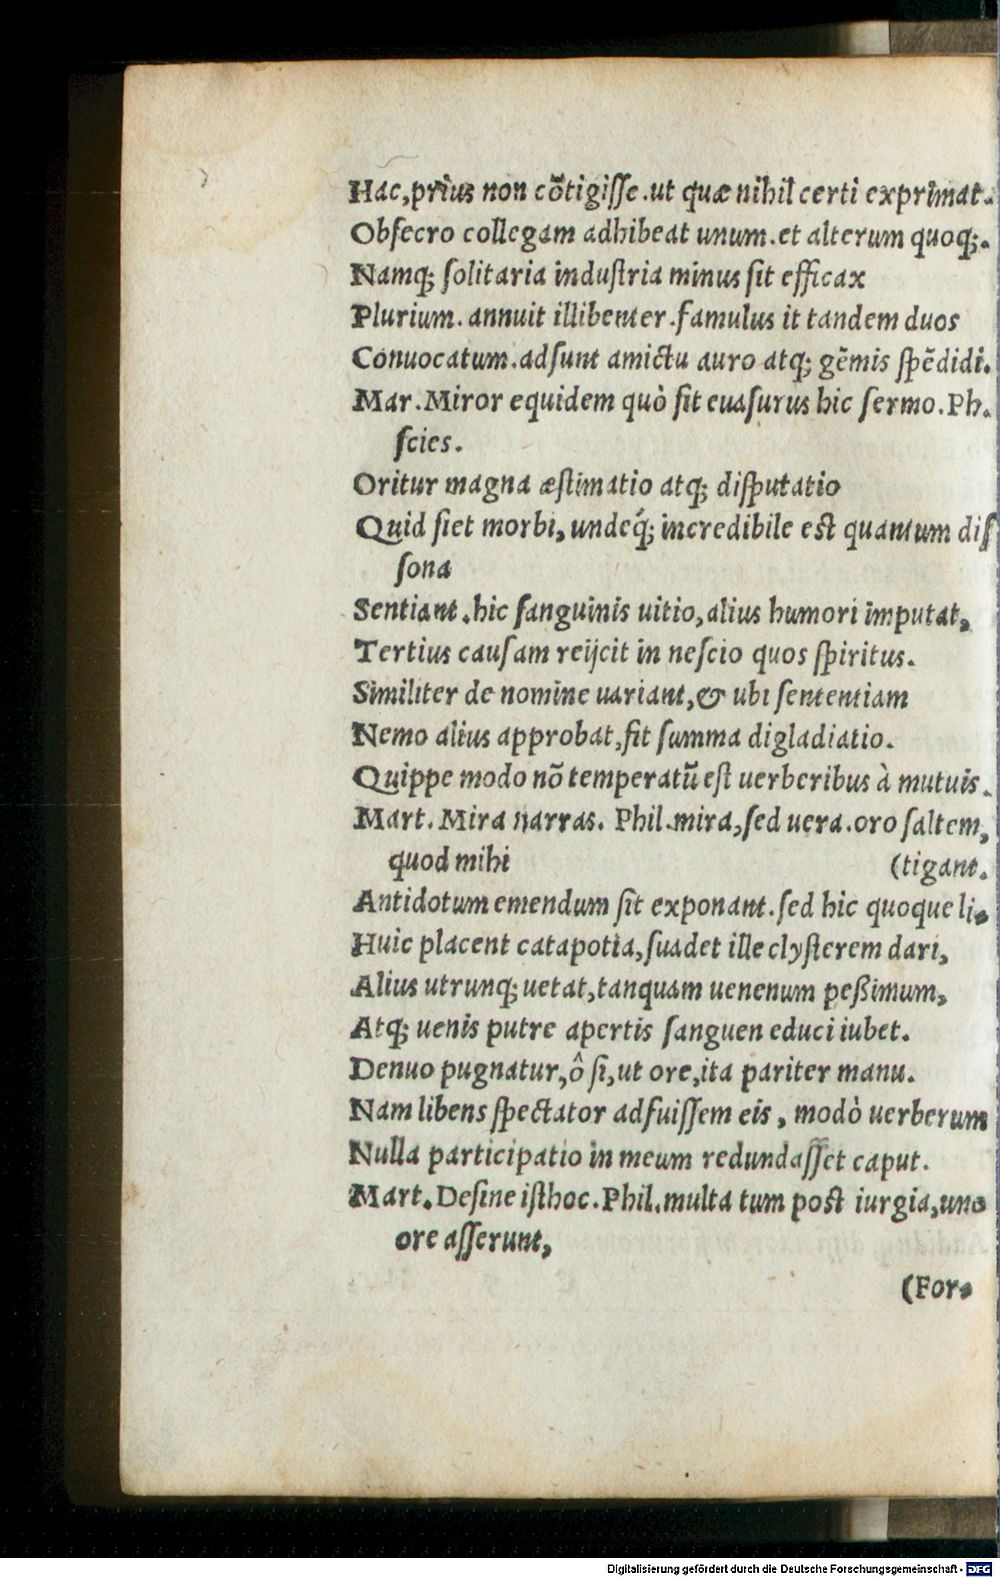 Hac,prius non cõtigiſſe.ut quæ nihil certi exprimat.
Obſecro collegam adhibeat unum.et alterum quoq;.
Namq; ſolitaria induſtria minus ſit efficax
Plurium. annuit illibenter.famulus it tandem duos
Conuocatum.adſunt amictu auro atq; gẽmis ſpẽdidi.
Mar.Miror equidem quò ſit euaſurus hic ſermo.Ph.
ſcies.
Oritur magna æſtimatio atq; diſputatio
Quid ſiet morbi, undeq́; incredibile est quantum diſ
ſona
Sentiant.hic ſanguinis uitio,alius humori imputat,
Tertius cauſam reijcit in neſcio quos ſpiritus.
Similiter de nomine uariant,& ubi ſententiam
Nemo alius approbat,fit ſumma digladiatio.
Quippe modo nõ temperatũ eſt uerberibus à mutuis.
Mart. Mira narras. Phil.mira,ſed uera.oro ſaltem,
quod mihi (tigant.
Antidotum emendum ſit exponant.ſed hic quoque li-
Huic placent catapotia,ſuadet ille clyſterem dari,
Alius utrunq; uetat,tanquam uenenum peßimum,
Atq; uenis putre apertis ſanguen educi iubet.
Denuo pugnatur,ô ſi,ut ore,ita pariter manu.
Nam libens ſpectator adfuiſſem eis, modò uerberum
Nulla participatio in meum redundaſſet caput.
Mart.Deſine iſthoc.Phil.multa tum post iurgia,uno
ore aſſerunt,
(For-
Digitalisierung gefördert durch die Deutsche Forschungsgemeinschaft - DFG